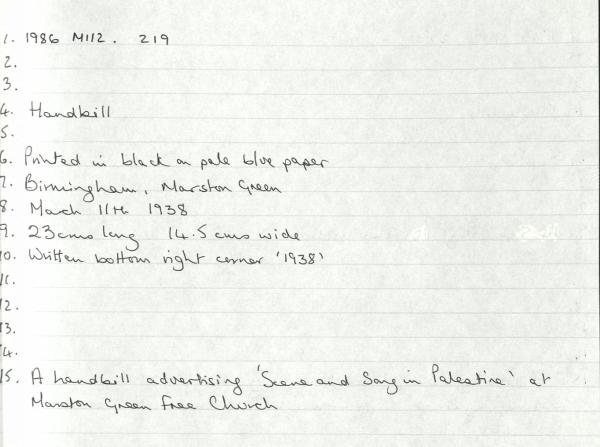 1. 1986 M112. 219
2.
3.
4. Handbill
5.
6. Printed in black on pale blue paper
7. Birmingham, Marston Green
8. March 11th 1938
9. 23cms long 14.5 cms wide
10. Written bottom right corner '1938'
11.
12.
13.
14.
15. A handbill advertising 'Scene and Song in Palestine' at
Marston Green Free Church